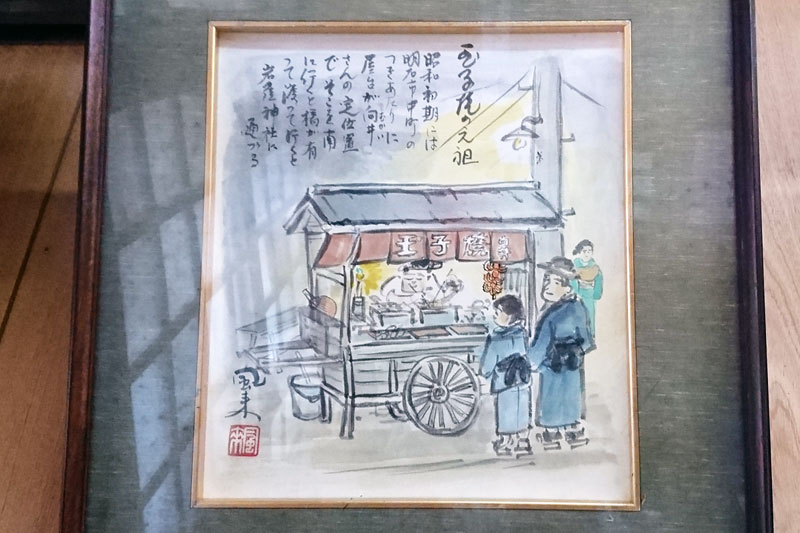 玉子焼の元祖
昭和初期には
明石市中町の
つきあたりに
屋台が向井
むかい
さんの定位置
でそこを南
に行くと橋が有
って渡って行くと
岩屋神社に
通づる
玉子焼
風来
風来